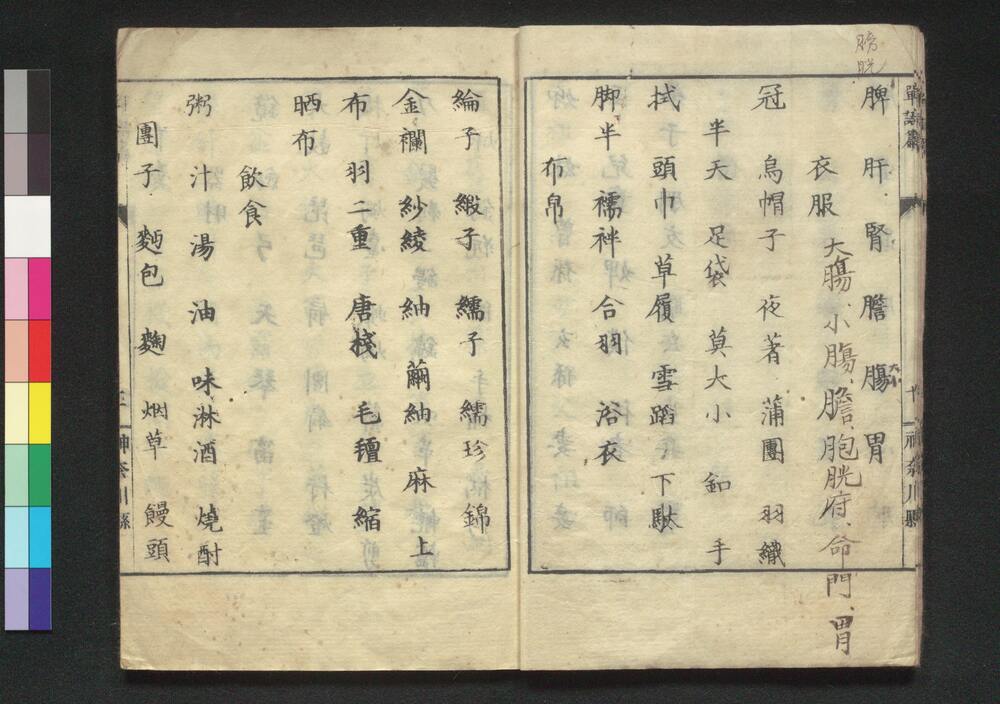 膀
胱
脾 肝 腎 膽 腸 胃
大小
大腸、小腸、膽、胞胱府、命門、胃
衣服
冠 烏帽子 夜著 蒲團 羽織
半天 足袋 莫大小 釦 手
拭 頭巾 草履 雪蹈 下駄
脚半 襦袢 合羽 浴衣
布帛
綸子 緞子 繻子 繻珍 錦
金襴 紗綾 紬 繭紬 麻 上
布 羽二重 唐棧 毛氊 縮
晒布
飲食
粥 汁 湯 油 味淋酒 燒酎
團子 麵包 麹 烟草 饅頭
神奈川縣